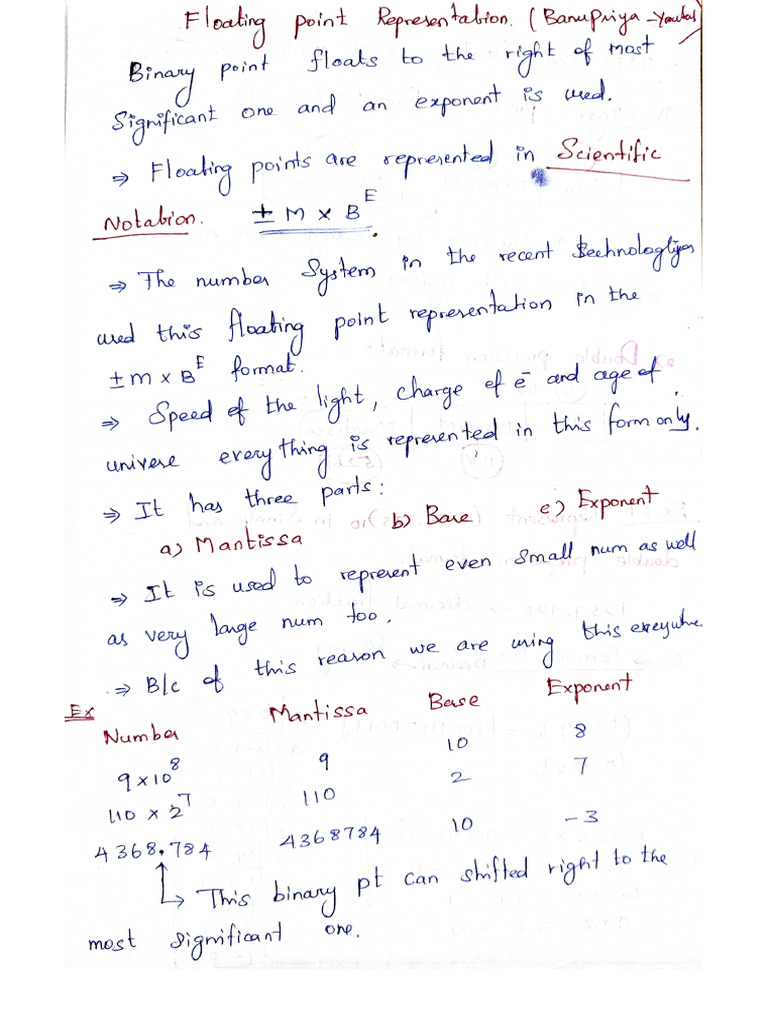 Floating point Representation. (Banupriya -
Binary point floats to the right of most
Significant one and an exponent is used.
⇒ Floating points are represented in Scientific
Notation. ± M × B^E.
⇒ The number System in the recent
used this floating point representation in the
± m × B^E format.
⇒ Speed of the light, charge of e⁻ and age of
univere everything is represented in this form only.
⇒ It has three parts:
a) Mantissa b) Base c) Exponent
⇒ It is used to represent even small num as well
as very large num too.
⇒ B/c of this reason we are using this
Ex
Number Mantissa Base Exponent
9×10^8 9 10 8
110 × 2^7 110 2 7
4368.784 4368784 10 -3
↳ This binary pt can shifted right to the
most significant one.